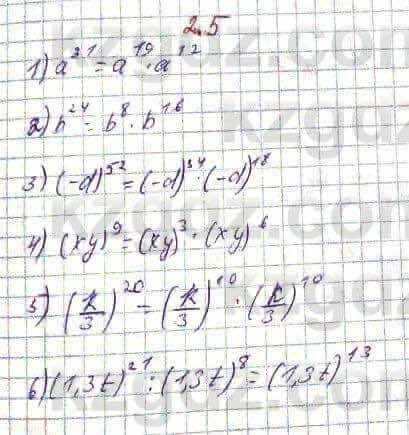 2.5
1) a³¹ = a¹⁹ · a¹²
2) b²⁴ = b⁸ · b¹⁶
3) (-d)⁵² = (-d)³⁴ · (-d)¹⁸
4) (xy)⁹ = (xy)³ · (xy)⁶
5) (k/3)²⁰ = (k/3)¹⁰ · (k/3)¹⁰
6) (1,3t)²¹ : (1,3t)⁸ = (1,3t)¹³